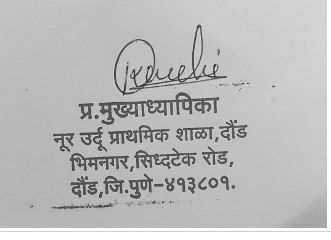 प्र.मुख्याध्यापिका
नूर उर्दू प्राथमिक शाळा,दौंड
भिमनगर,सिध्दटेक रोड,
दौंड,जि.पुणे-४१३८०१.